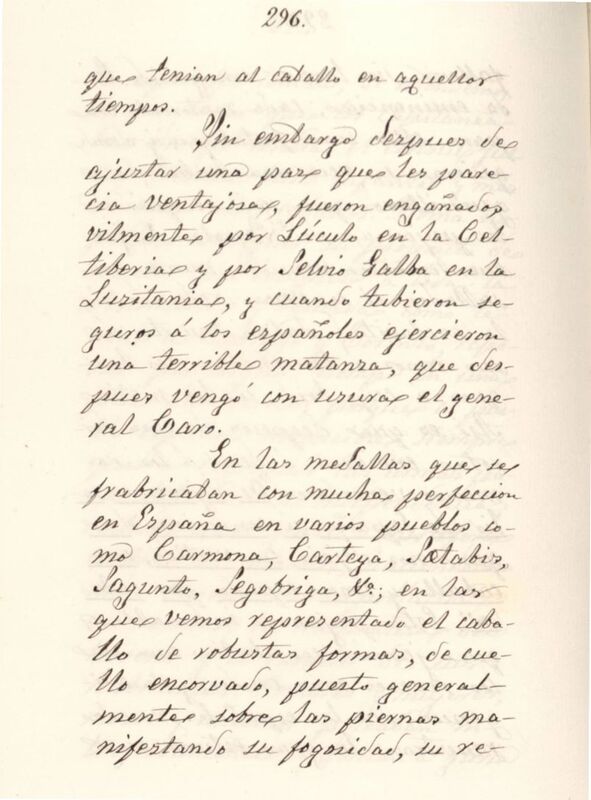 296.
que tenian al caballo en aquellos
tiempos.
Sin embargo despues de
ajustar una paz que les pare-
cia ventajosa, fueron engañados
vilmente por Lúculo en la Cel-
tiberia y por Selvio Galba en la
Lusitania, y cuando tubieron se-
guros á los españoles ejercieron
una terrible matanza, que des-
pues vengó con usura el gene-
ral Caro.
En las medallas que se
frabricaban con mucha perfeccion
en España en varios pueblos co-
mo Carmona, Carteya, Sætabis,
Sagunto, Segobriga, &ª; en las
que vemos representado el caba-
llo de robustas formas, de cue-
llo encorvado, puesto general-
mente sobre las piernas ma-
nifestando su fogosidad, su re-